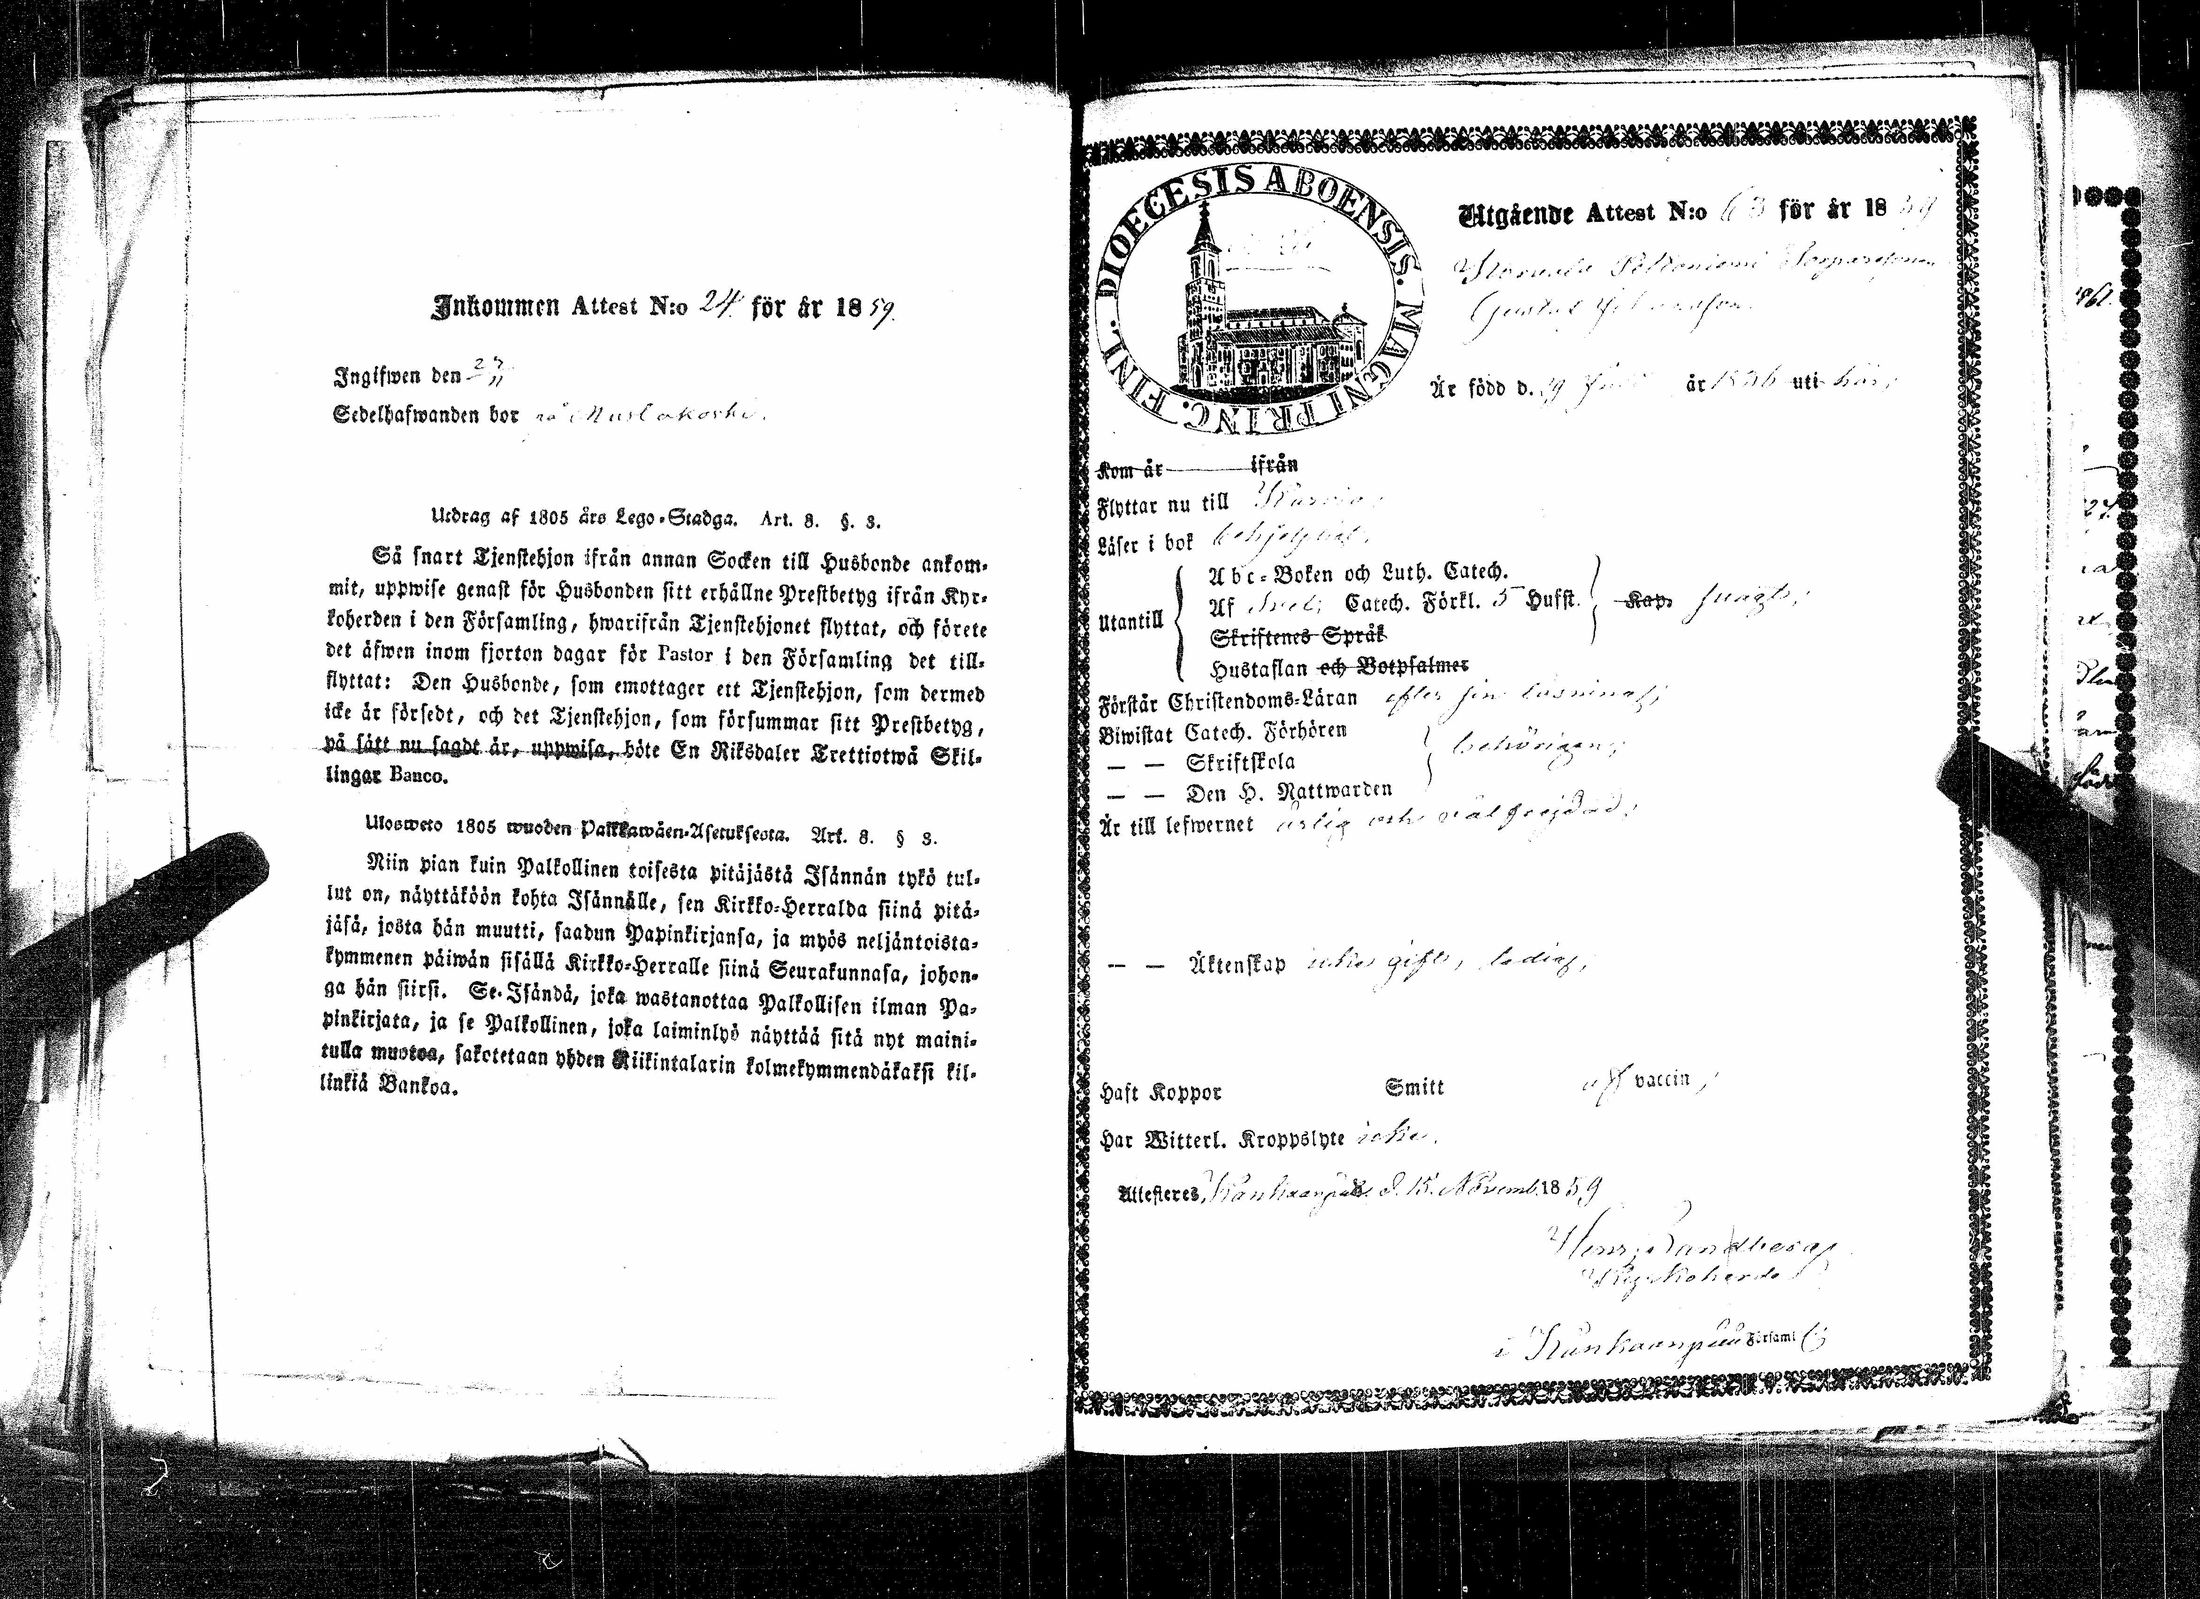 Inkommen Attest N:o 24 för år 1859.
Ingifwen den 27/11
Sedelhafwanden bor på
Utdrag af 1805 års Lego-Stadga. Art. 8. §. 3.
Så snart Tjenstehjon ifrån annan Socken till Husbonde ankom-
mit, uppwise genast för Husbonden sitt erhållne Prestbetyg ifrån Kyr-
koherden i den Församling, hwarifrån Tjenstehjonet flyttat, och förete
det äfwen inom fjorton dagar för Pastor i den Församling det till-
flyttat: Den Husbonde, som emottager ett Tjenstehjon, som dermed
icke är försedt, och det Tjenstehjon, som försummar sitt Prestbetyg,
på sätt nu sagdt är, uppwisa, böte En Riksdaler Trettiotwå Skil-
lingar Banco.
Ulosweto 1805 wuoden Palkkawäen-Asetuksesta. Art. 8. § 3.
Niin pian kuin Palkollinen toisesta pitäjästä Isännän tykö tul-
lut on, näyttäköön kohta Isännälle, sen Kirkko-Herralda siinä pitä-
jäsä, josta hän muutti, saadun Papinkirjansa, ja myös neljäntoista-
kymmenen päiwän sisällä Kirkko-Herralle siinä Seurakunnasa, johon-
ga hän siirsi. Se Isändä, joka wastanottaa Palkollisen ilman Pa-
pinkirjata, ja se Palkollinen, joka laiminlyö näyttää sitä nyt maini-
tulla muotoa, sakotetaan yhden Riikintalarin kolmekymmendäkaksi kil-
linkiä Bankoa.
DIOECESIS ABOENSIS. MAGNI PRINC. FINL.
Utgående Attest N:o 63 för år 1859
Gustaf
Är född d. 29 år 1836 uti här,
Kom år ifrån
Flyttar nu till
Läser i bok behjelpligt,
Utantill
Abc-Boken och Luth. Catech.
Af Sveb. Catech. Förkl. 5 Hufst.
Kap.
Skriftenes Språk
Hustaflan och Botpsalmer
Förstår Christendoms-Läran efter sin läsning,
Biwistat Catech. Förhören
— — Skriftskola
behörigen;
— — Den H. Nattwarden
Är till lefwernet ärlig och väl frejdad;
— — Äktenskap icke gift, ledig;
Haft Koppor Smitt vaccin,
Har Witterl. Kroppslyte icke.
Attesteres, Kankaanpää d. 15 Novemb. 1859
Henr. Sandberg
Kyrkoherde
i Kankaanpää Församl